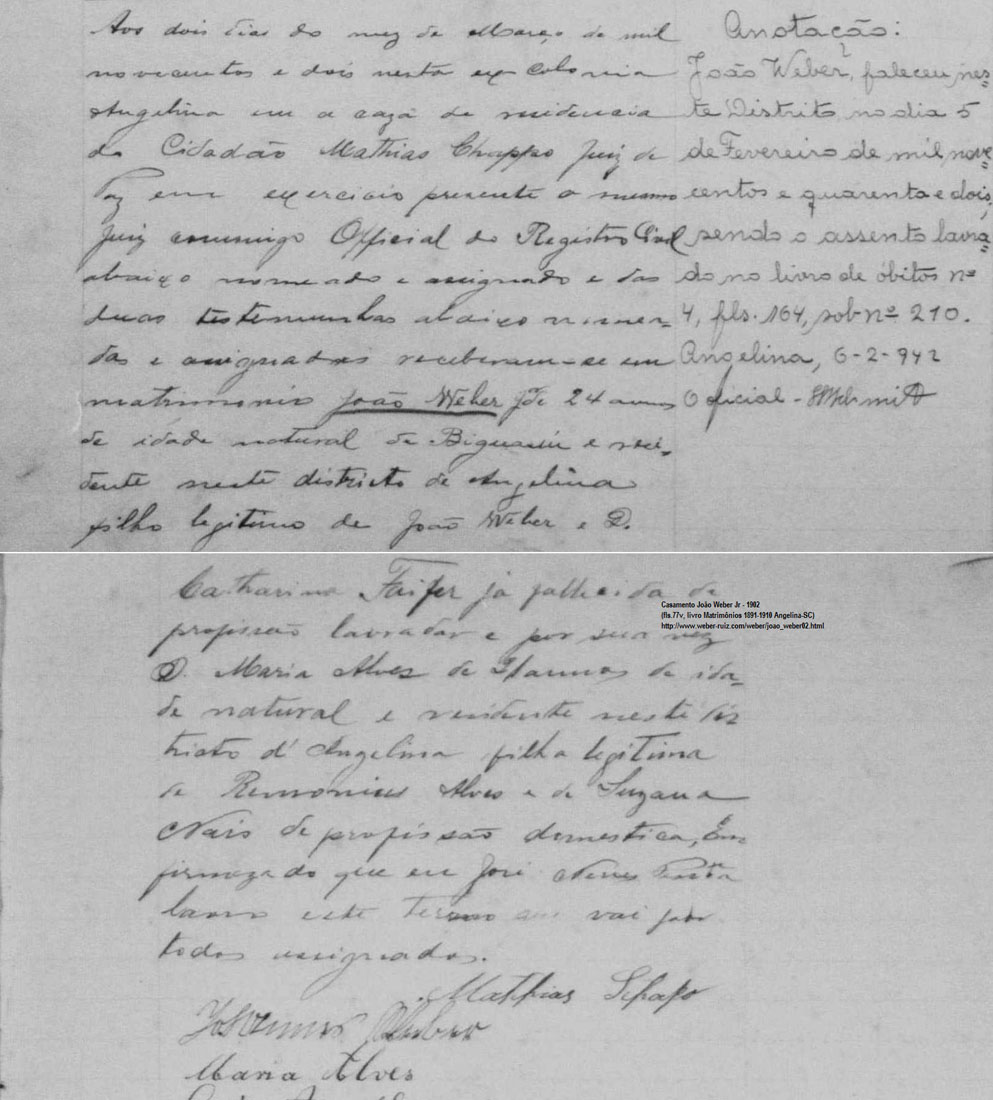 Aos dois dias do mez de Março de mil
novecentos e dois nesta ex colonia
Angelina em a caza de residencia
do Cidadão Mathias Chappo Juiz de
Paz em exercicio presente o mesmo
Juiz commigo Official do Registro Civil
abaixo nomeado e assignado e das
duas testemunhas abaixo nomea-
das e assignadas receberam-se em
matrimonio João Weber Jor de 24 annos
de idade natural de Biguassú e resi-
dente neste districto de Angelina
filho legitimo de João Weber e D.
Anotação:
João Weber, faleceu, nes=
te Distrito no dia 5
de Fevereiro de mil nove
centos e quarenta e dois,
sendo o assento lavra=
do no livro de óbitos nº
4, fls. 164, sob nº 210.
Angelina, 6-2-942
Oficial -
Catharina Faifer já fallecida de
profissão lavrador e por sua vez
D. Maria Alves de annos de ida-
de natural e residente neste dis
tricto d'Angelina filha legitima
de Alves e de Suzana
de profissão domestica, Em
firmeza do que eu José Neves
lavro este termo que vai por
todos assignados.
Mathias Schapo
Johannes Weber
Maria Alves
Casamento João Weber Jr - 1902
(fls.77v, livro Matrimônios 1891-1910 Angelina-SC)
http://www.weber-ruiz.com/weber/joao_weber02.html